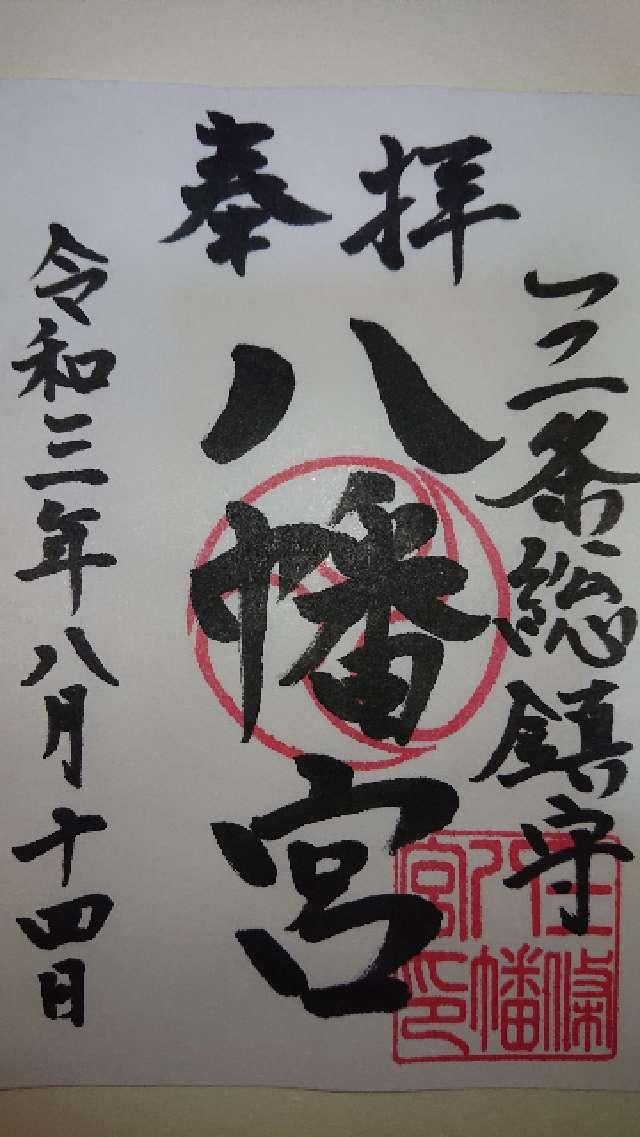 奉拝
三条総鎮守
八幡宮
令和三年八月十四日
條
八幡
宮印